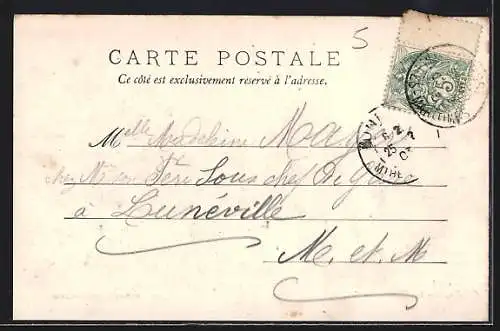 5
CARTE POSTALE
Ce côté est exclusivement réservé à l'adresse.
Melle Madeleine May
chez Mr son Père Sous chef de gare
à Lunéville
M. et M